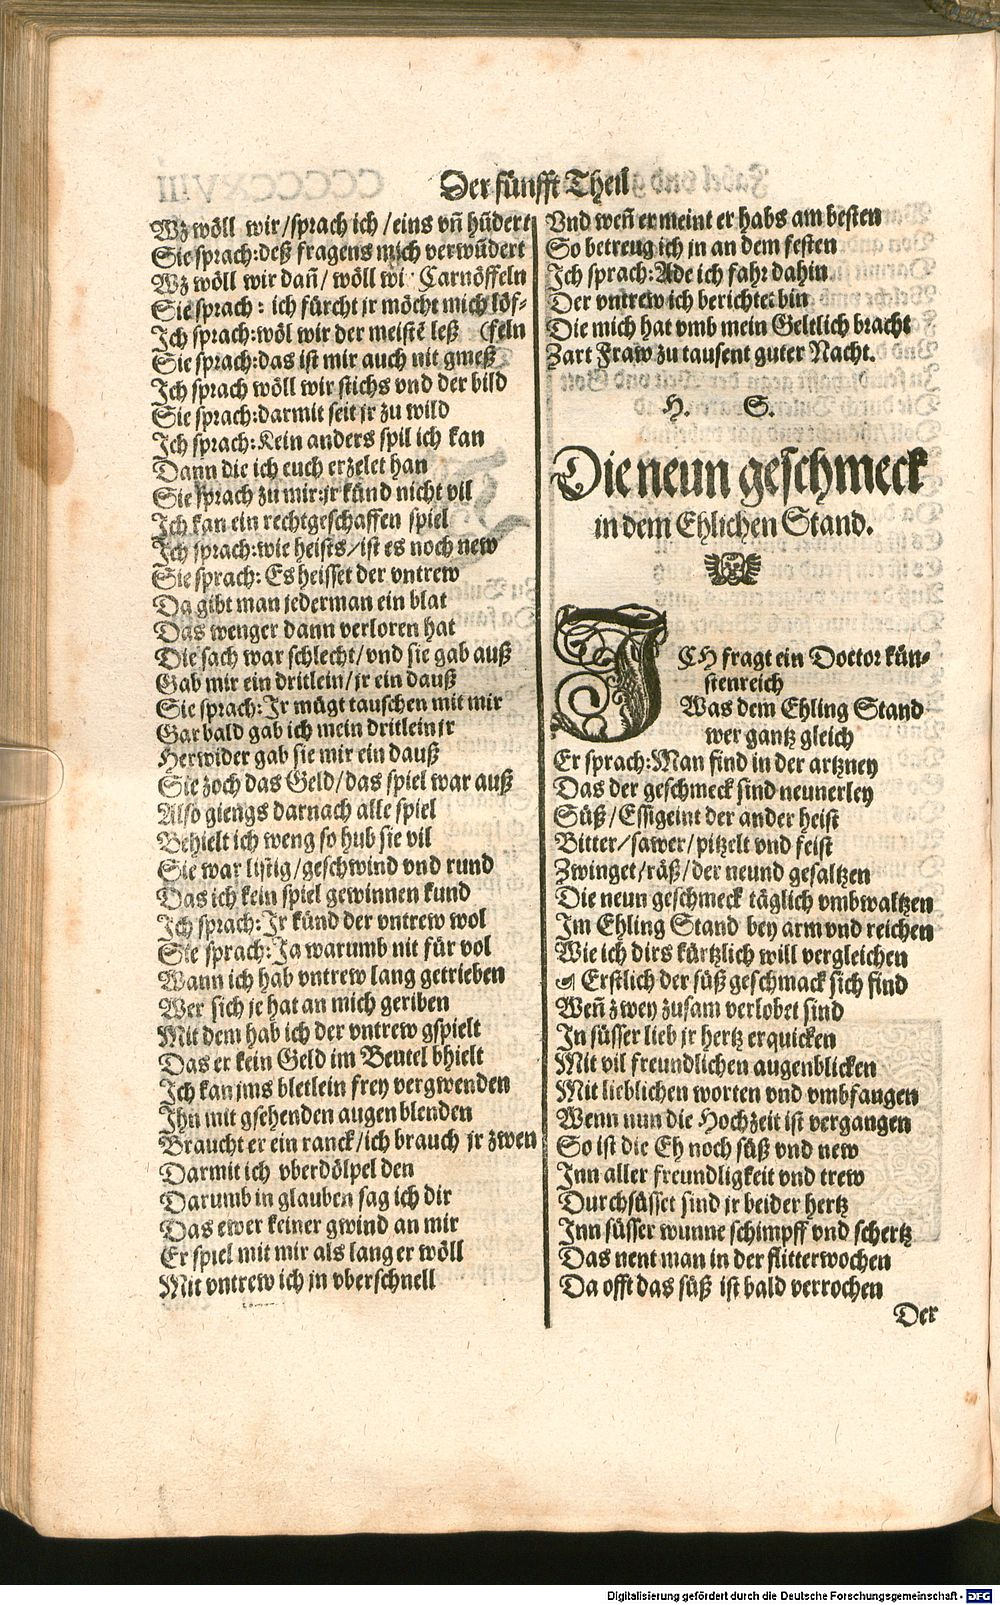 Der fünfft Theil
Wz wöll wir/sprach ich/eins vñ hūdert
Sie sprach:deß fragens mich verwūdert
Wz wöll wir dañ/wöll wi Carnöffeln
Sie sprach: ich fürcht jr möcht mich löf-
Ich sprach:wöl wir der meistē leß (feln
Sie sprach:das ist mir auch nit gmeß
Ich sprach wöll wir stichs vnd der bild
Sie sprach:darmit seit jr zu wild
Ich sprach:Kein anders spil ich kan
Dann die ich euch erzelet han
Sie sprach zu mir:jr künd nicht vil
Ich kan ein rechtgeschaffen spiel
Ich sprach:wie heists/ist es noch new
Sie sprach: Es heisset der vntrew
Da gibt man jederman ein blat
Das wenger dann verloren hat
Die sach war schlecht/vnd sie gab auß
Gab mir ein dritlein/jr ein dauß
Sie sprach:Jr mügt tauschen mit mir
Gar bald gab ich mein dritlein jr
Herwider gab sie mir ein dauß
Sie zoch das Geld/das spiel war auß
Also giengs darnach alle spiel
Behielt ich weng so hub sie vil
Sie war listig/geschwind vnd rund
Das ich kein spiel gewinnen kund
Ich sprach:Jr künd der vntrew wol
Sie sprach:Ja warumb nit für vol
Wann ich hab vntrew lang getrieben
Wer sich je hat an mich geriben
Mit dem hab ich der vntrew gspielt
Das er kein Geld im Beutel bhielt
Ich kan jms bletlein frey vergwenden
Ihn mit gsehenden augen blenden
Braucht er ein ranck/ich brauch jr zwen
Darmit ich vberdölpel den
Darumb in glauben sag ich dir
Das ewer keiner gwind an mir
Er spiel mit mir als lang er wöll
Mit vntrew ich jn vberschnell
Vnd weñ er meint er habs am besten
So betreug ich jn an dem festen
Ich sprach:Ade ich fahr dahin
Der vntrew ich berichtet bin
Die mich hat vmb mein Geltlich bracht
Zart Fraw zu tausent guter Nacht.
H. S.
Die neun geschmeck
in dem Ehlichen Stand.
ICH fragt ein Doctor kün-
stenreich
Was dem Ehling Stand
wer gantz gleich
Er sprach:Man find in der artzney
Das der geschmeck sind neunerley
Süß/Essigeint der ander heist
Bitter/sawer/pitzelt vnd feist
Zwinget/räß/der neund gesaltzen
Die neun geschmeck täglich vmbwaltzen
Im Ehling Stand bey arm vnd reichen
Wie ich dirs kürtzlich will vergleichen
☙ Erstlich der süß geschmack sich find
Weñ zwey zusam verlobet sind
In süsser lieb jr hertz erquicken
Mit vil freundlichen augenblicken
Mit lieblichen worten vnd vmbfangen
Wenn nun die Hochzeit ist vergangen
So ist die Eh noch süß vnd new
Inn aller freundligkeit vnd trew
Durchsüsset sind jr beider hertz
Inn süsser wunne schimpff vnd schertz
Das nent man in der flitterwochen
Da offt das süß ist bald verrochen
Der
Digitalisierung gefördert durch die Deutsche Forschungsgemeinschaft - DFG